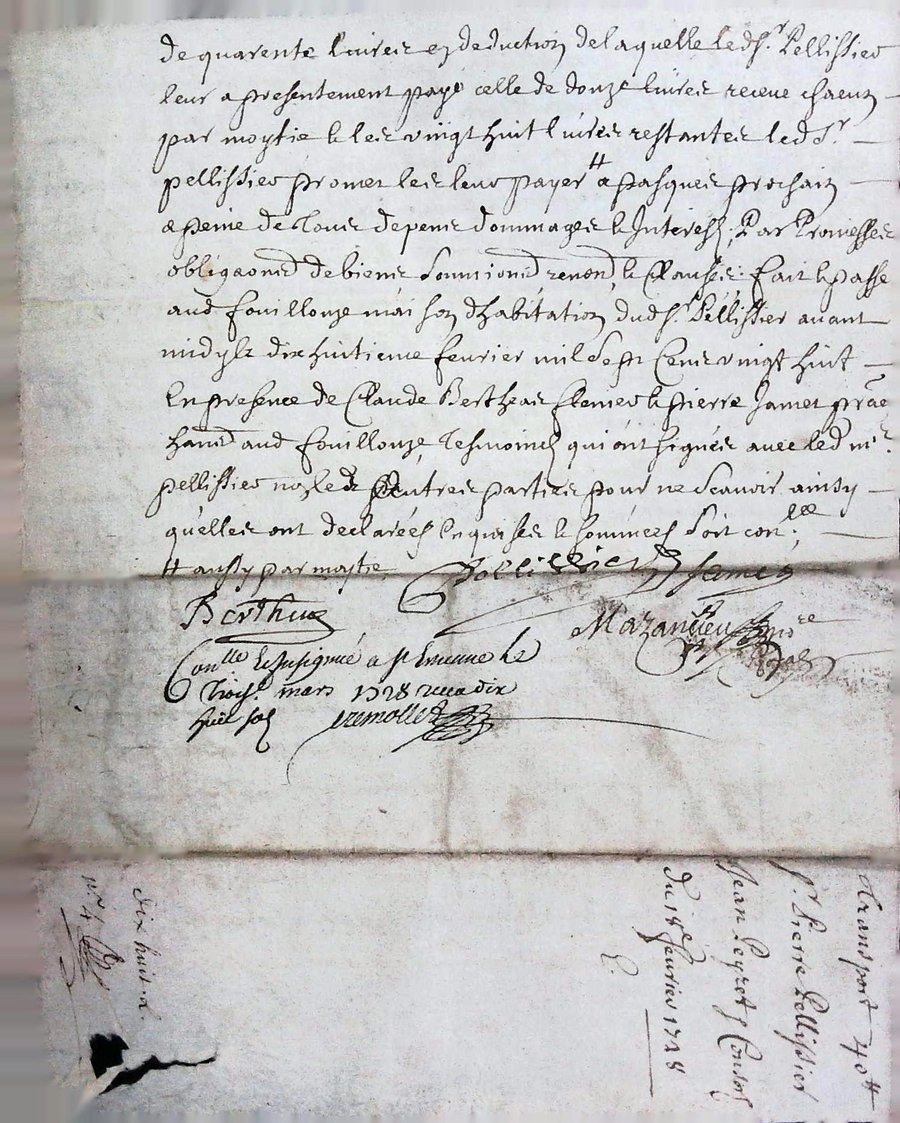 de quarente livres en deduction de laquelle led. sr. Pellissier
leur a presentement payé celle de douze livres receue chacun
par moytie & les vingt huit livres restantes led. Sr.
pellissier promet les leur payer # a pasques prochain
a peine de tous depens dommages & Interests, Par Promesses
obligaõns de biens soumions renonõn & Clauses: fait & passé
aud fouillouze maison d'habitation dud sr. Pellissier avant
midy le dix huitieme fevrier mil sept Cens vingt huit
En presence de Claude Bertheas & pierre Jamet
aud fouillouze, Tesmoins qui ont signés avec led
pellissier non les autres parties pour ne scavoir ainsy
qu'elles ont declarées Enquises & sommees soit con.lle
# aussy par moytie
Pellissier Jamet
Bertheas
Mazandieu no.re
Con.lle & Insignué a st Etienne le
trois.e mars 1728 receu dix
huit sols
transport 40#
sr. Pierre Pellissier
Jean Peyret & Consors
du 18e fevrier 1728
dix huit